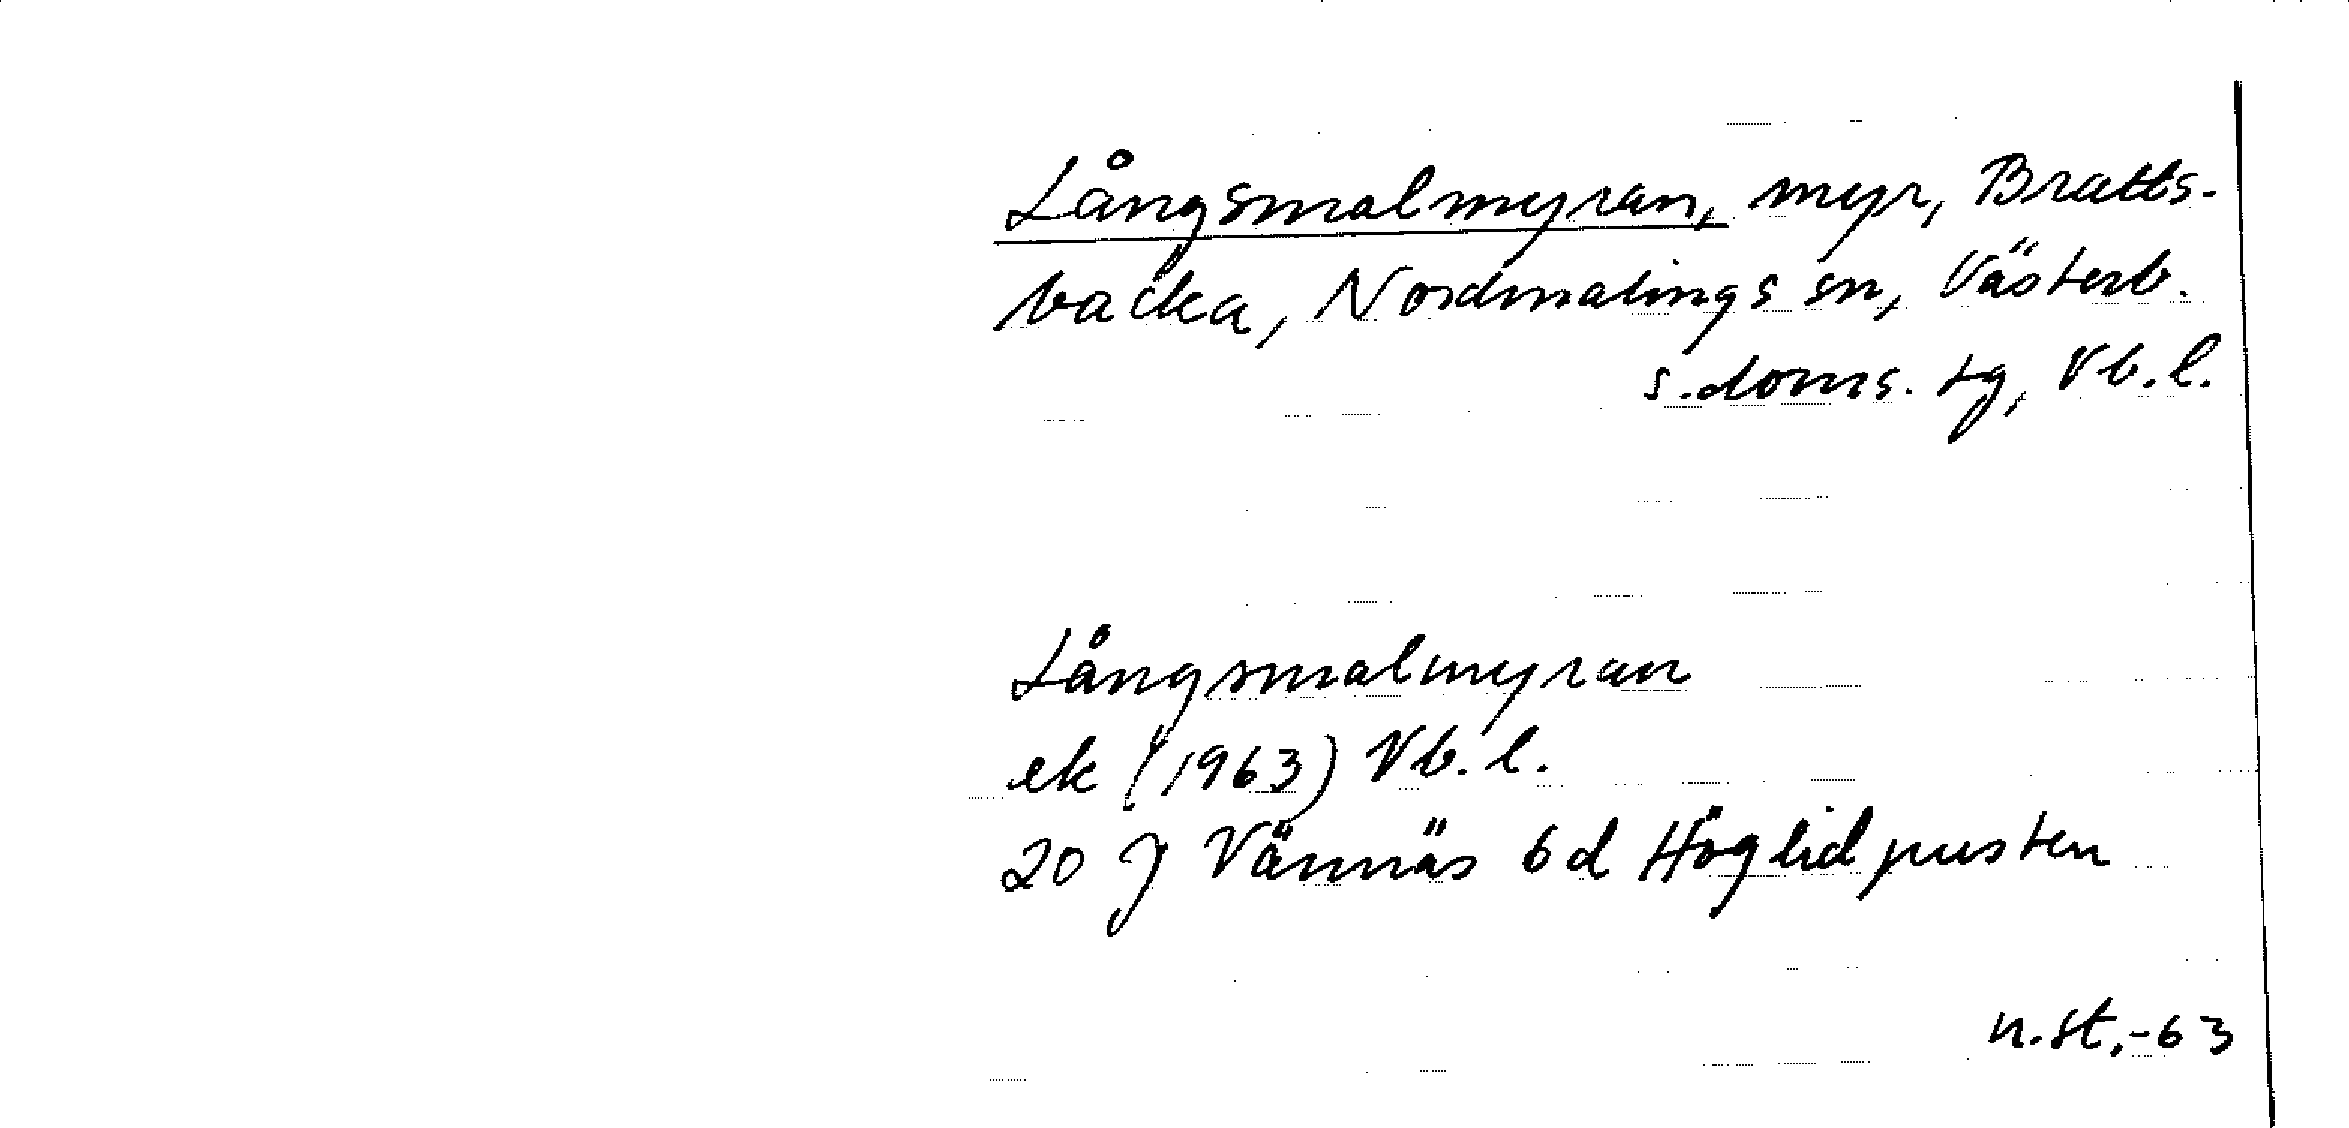 Långsmalmyran, myr, Bratts-
backa, Nordmalings sn, Västerb.
s. doms. tg, Vb. l.
Långsmalmyran
ek (1963) Vb. l.
20 J Vännäs 6d Höglidpusten
n. st. -63